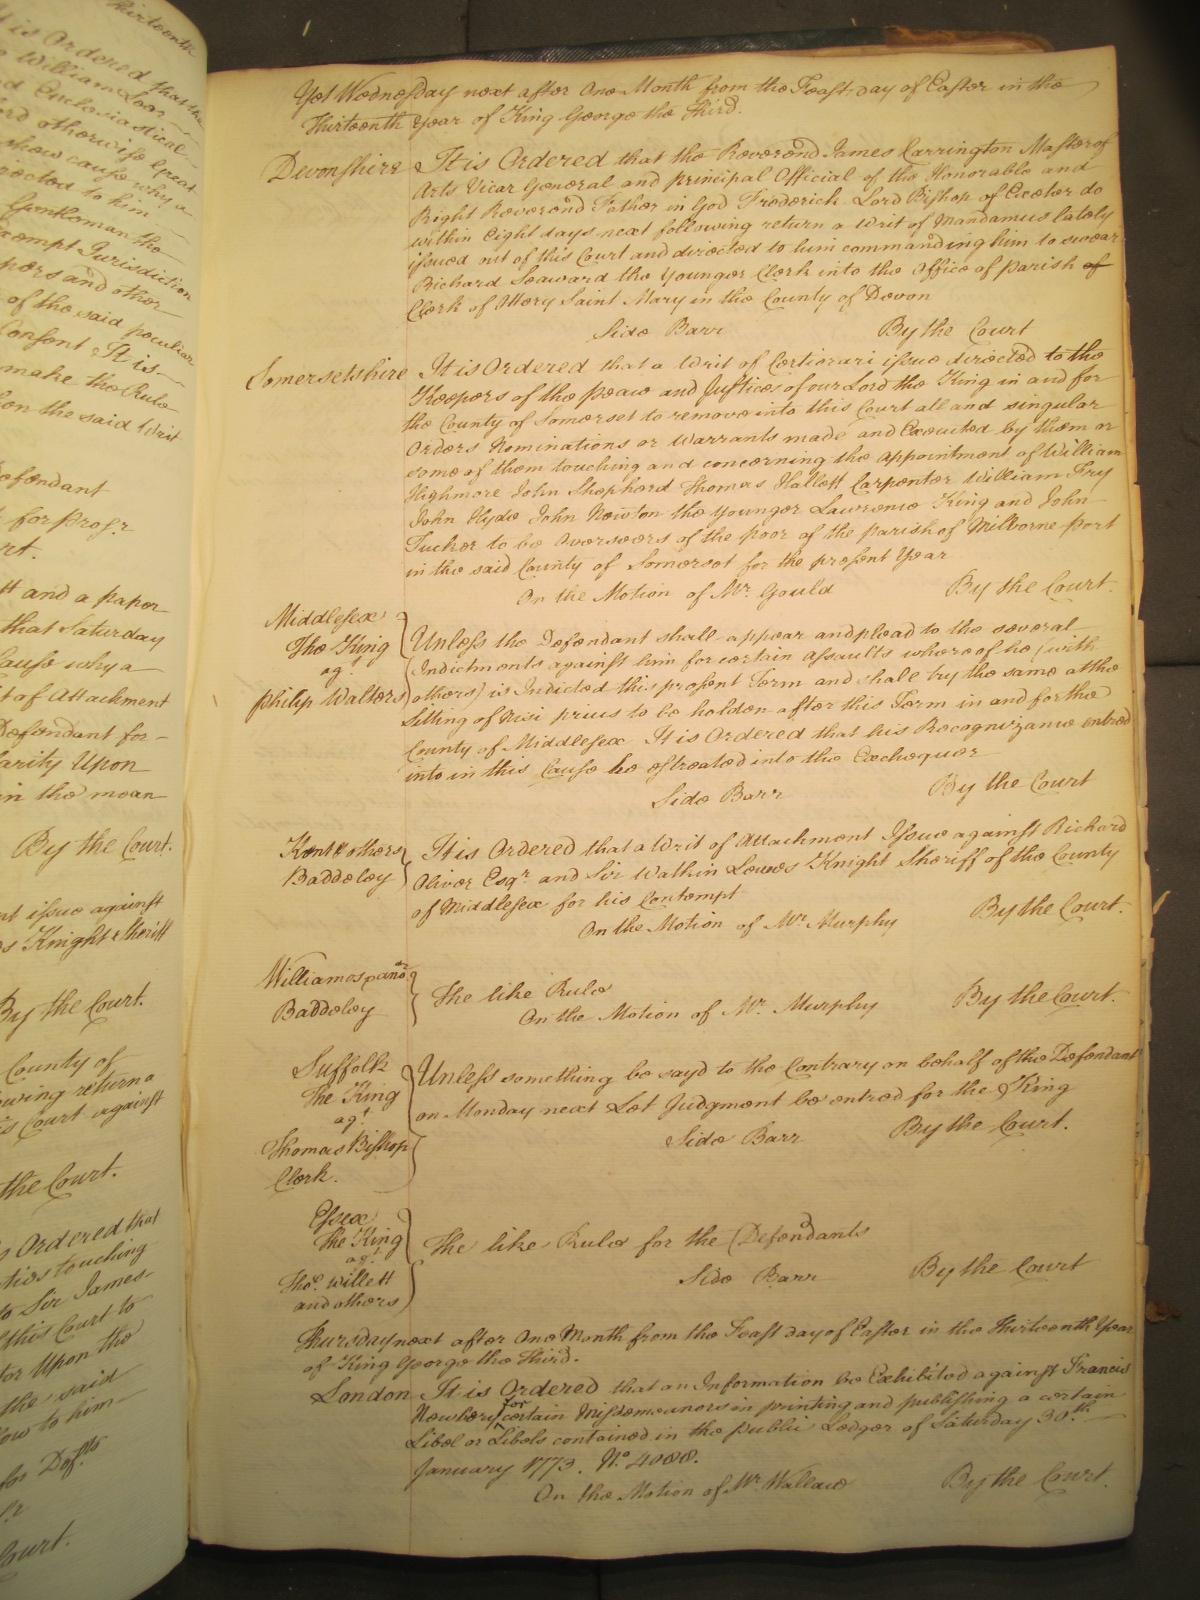 Thirteenth
It is Ordered that the
William
and Ecclesiastical
Lord otherwise Great
shew cause why a
directed to him
Gentleman the
Exempt Jurisdiction
and other
of the said peculiar
Consent It is
make the Rule
on the said Writ
Defendant
for Prosr.
Court.
and a paper
that Saturday
Cause why a
Writ of Attachment
Defendant for
Upon
in the mean
By the Court.
issue against
Knight Sheriff
By the Court.
County of
following return a
this Court against
the Court.
is Ordered that
touching
to Sir James
this Court to
Upon the
the said
to him
for Defts
Court.
Yet Wednesday next after One Month from the Feast day of Easter in the
Thirteenth Year of King George the Third.
Devonshire It is Ordered that the Reverend James Carrington Master of
Arts Vicar General and principal Official of the Honorable and
Right Reverend Father in God Frederick Lord Bishop of Exeter do
within Eight days next following return a Writ of Mandamus lately
issued out of this Court and directed to him commanding him to swear
Richard Seaward the Younger Clerk into the Office of Parish of
Clerk of Ottery Saint Mary in the County of Devon
Side Barr By the Court
Somersetshire It is Ordered that a Writ of Certiorari issue directed to the
Keepers of the peace and Justices of our Lord the King in and for
the County of Somerset to remove into this Court all and singular
Orders Nominations or Warrants made and Executed by them or
some of them touching and concerning the Appointment of William
Highmore John Shepherd Thomas Hallett Carpenter William Fry
John Hyde John Newton the younger Lawrence King and John
Tucker to be Overseers of the poor of the parish of Milborne Port
in the said County of Somerset for the present Year
On the Motion of Mr. Gould By the Court.
Middlesex
The King
agt.
Philip Walters
Unless the Defendant shall appear and plead to the several
Indictments against him for certain Assaults whereof he (with
others) is Indicted this present Term and shall try the same at the
Sitting of Nisi prius to be holden after this Term in and for the
County of Middlesex It is Ordered that his Recognizance entred
into in this Cause be estreated into the Exchequer
Side Barr By the Court
Kent & others
Baddeley
It is Ordered that a Writ of Attachment Issue against Richard
Oliver Esqr. and Sir Watkin Lewes Knight Sheriff of the County
of Middlesex for his Contempt
On the Motion of Mr. Murphy By the Court.
Williams
Baddeley
The like Rule
On the Motion of Mr. Murphy By the Court.
Suffolk
The King
agt.
Thomas Bishop
Clerk.
Unless something be sayd to the Contrary on behalf of the Defendant
on Monday next Let Judgment be entred for the King
Side Barr By the Court.
Essex
The King
agt.
Thos. Willett
and others
The like Rule for the Defendants
Side Barr By the Court
Thursday next after One Month from the Feast day of Easter in the Thirteenth Year
of King George the Third.
London It is Ordered that an Information be Exhibited against Francis
Newbery for certain Misdemeanors in printing and publishing a certain
Libel or Libels contained in the Public Ledger of Saturday 30th
January 1773. No. 4088.
On the Motion of Mr. Wallace By the Court.